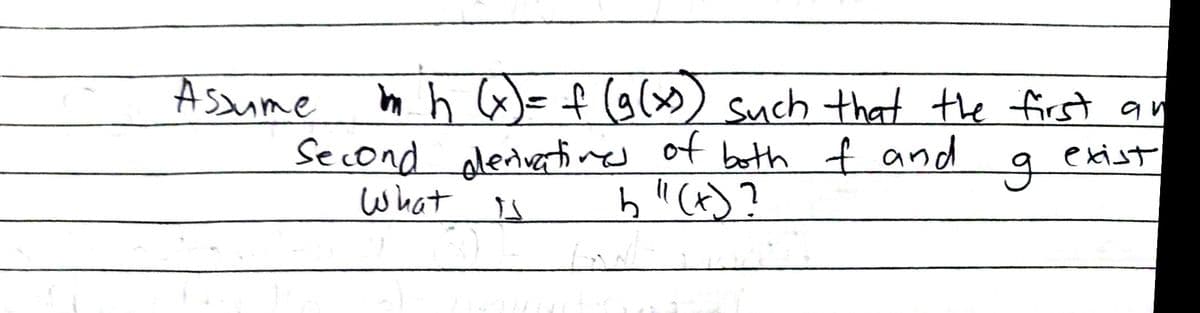 Assume h (x) = f (g(x)) such that the first an
Second derivatives of both f and g exist
What is h"(x)?